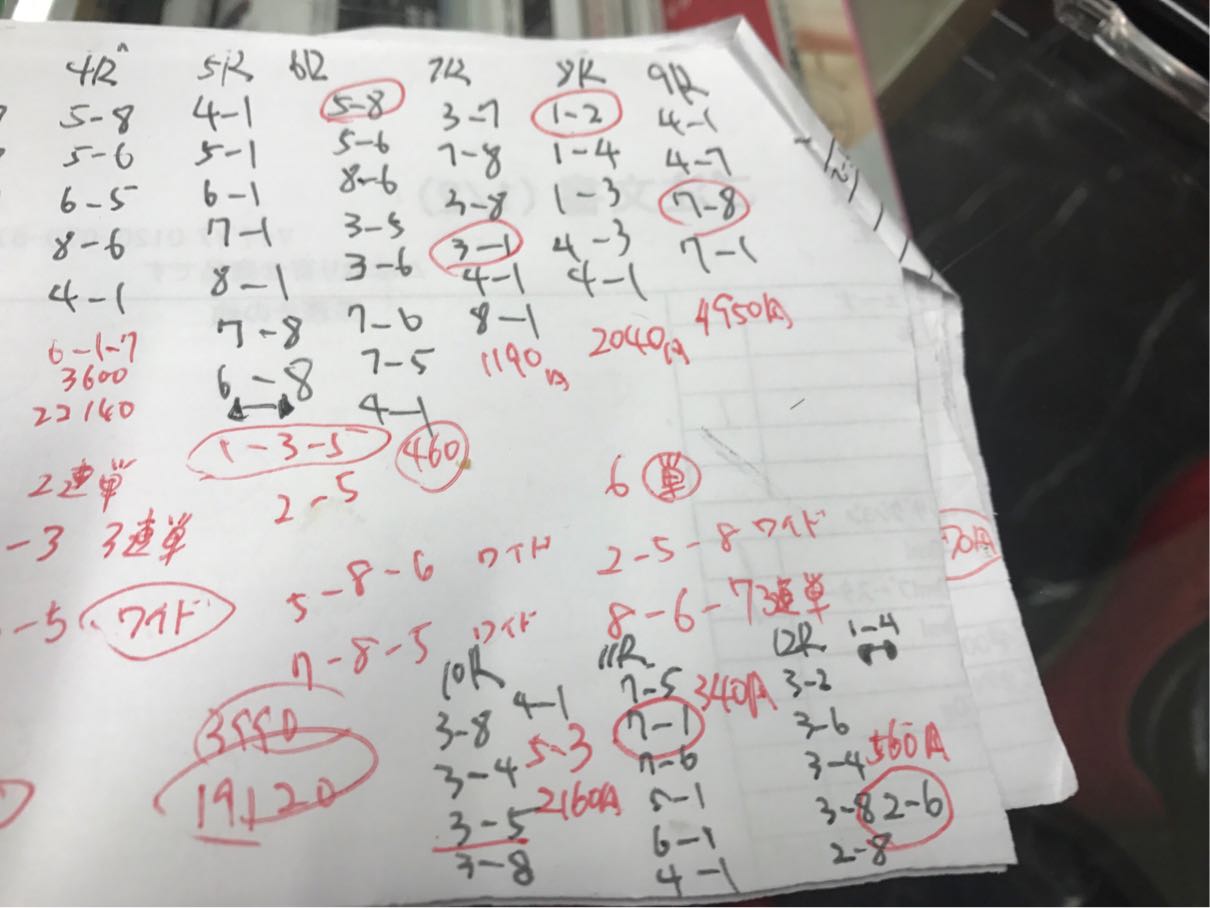 4R
5-8
5-6
6-5
8-6
4-1
6-1-7
3600
22140
2連単
-3 3連単
-5 ワイド
5R
4-1
5-1
6-1
7-1
8-1
7-8
6-8
1-3-5
2-5
6R
5-8
5-6
8-6
3-5
3-6
7-6
7-5
4-1
460
7R
3-7
7-8
3-8
3-1
4-1
8-1
1190円
8R
1-2
1-4
1-3
4-3
4-1
2040円
9R
4-1
4-7
7-8
7-1
4950円
5-8-6 ワイド
7-8-5 ワイド
3550
19120
6 単
2-5-8 ワイド
8-6-7 3連単
70円
10R
4-1
3-8
3-4 5-3
3-5 2160円
3-8
11R
7-5 340円
7-1
7-6
5-1
6-1
4-1
12R 1-4
3-2
3-6
3-4 560円
3-8 2-6
2-8